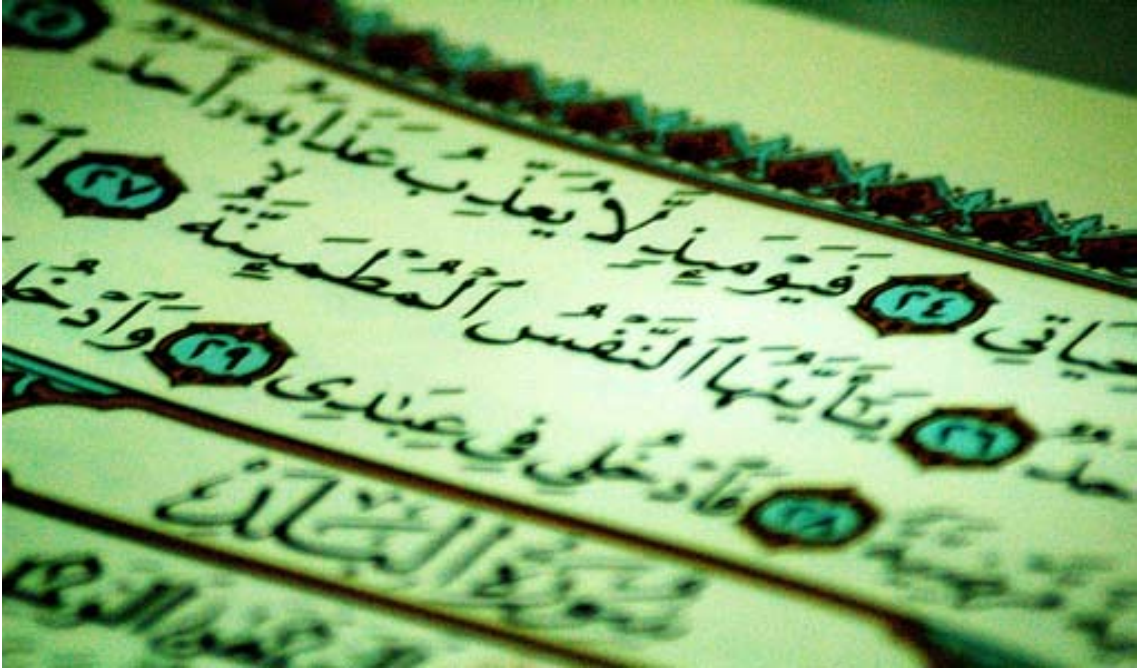 لِحَيَاتِي ٢٤ فَيَوْمَئِذٍ لَّا يُعَذِّبُ عَذَابَهُۥٓ أَحَدٌ ٢٥
أَحَدٌ ٢٦ يَٰٓأَيَّتُهَا ٱلنَّفْسُ ٱلْمُطْمَئِنَّةُ ٢٧
مَّرْضِيَّةً ٢٨ فَٱدْخُلِي فِي عِبَٰدِي ٢٩ وَٱدْخُلِي
سُورَةُ الْبَلَدِ
الرَّحْمَٰنِ